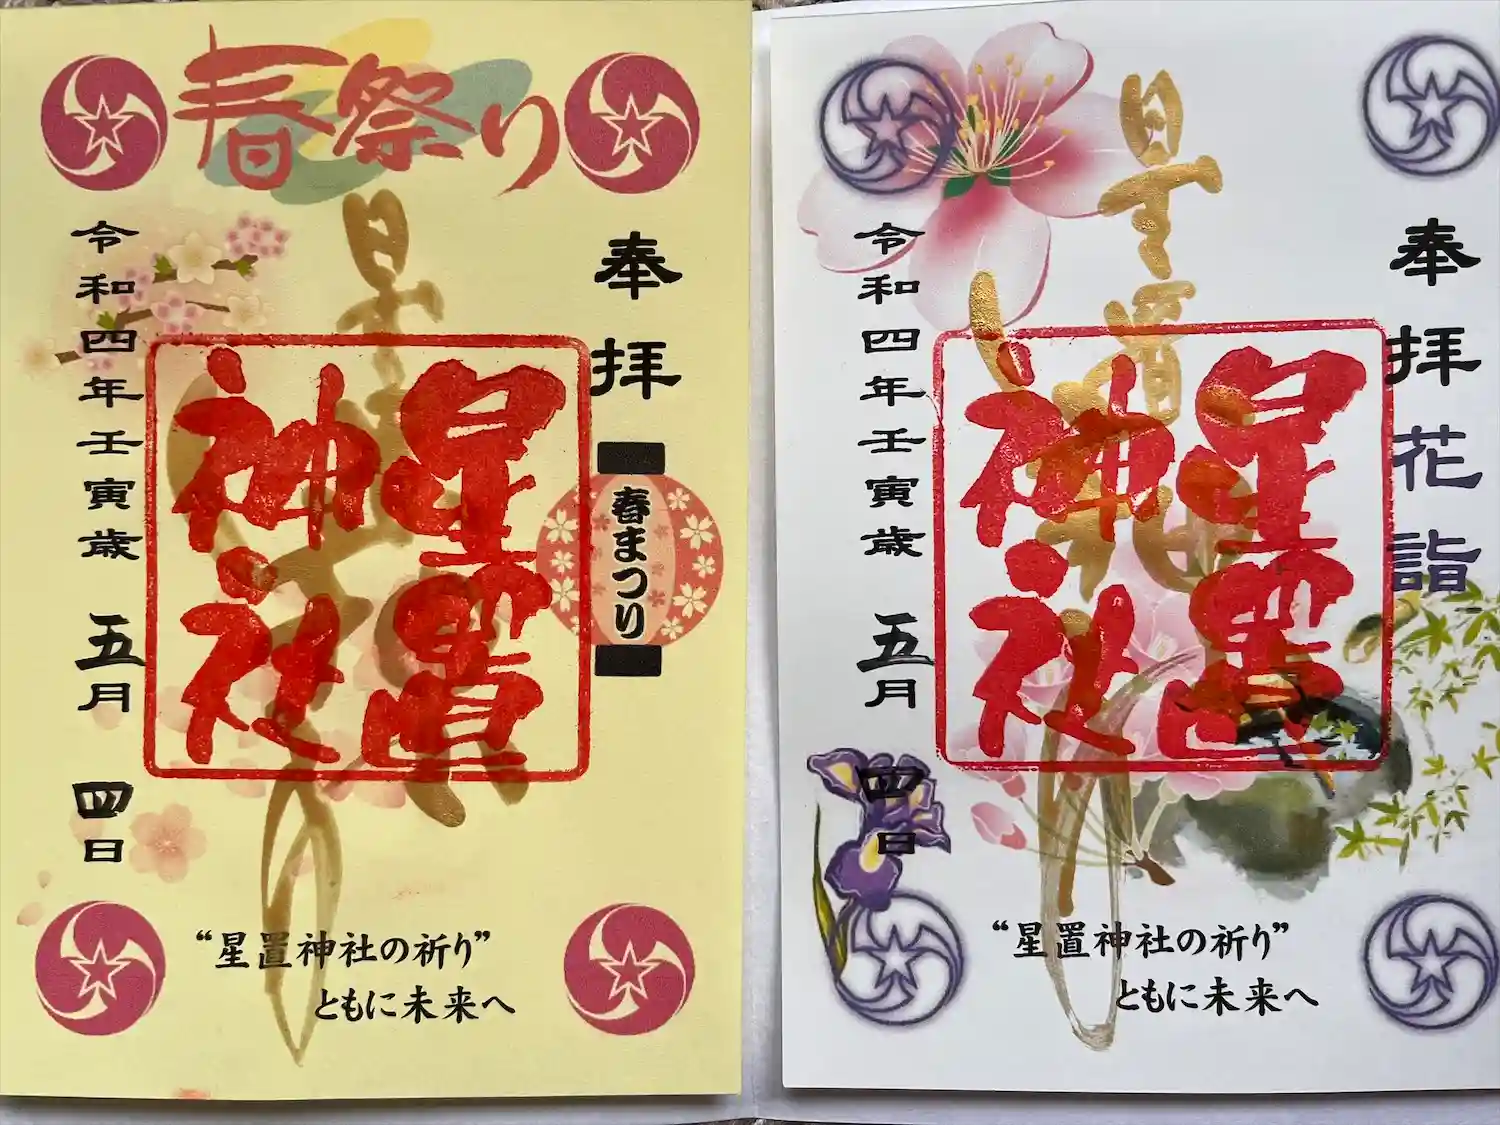 春祭り
奉拝
春まつり
星置神社
星置神社
令和四年壬寅歳 五月 四日
“星置神社の祈り”
ともに未来へ
奉拝 花詣
星置神社
星置神社
令和四年壬寅歳 五月 四日
“星置神社の祈り”
ともに未来へ